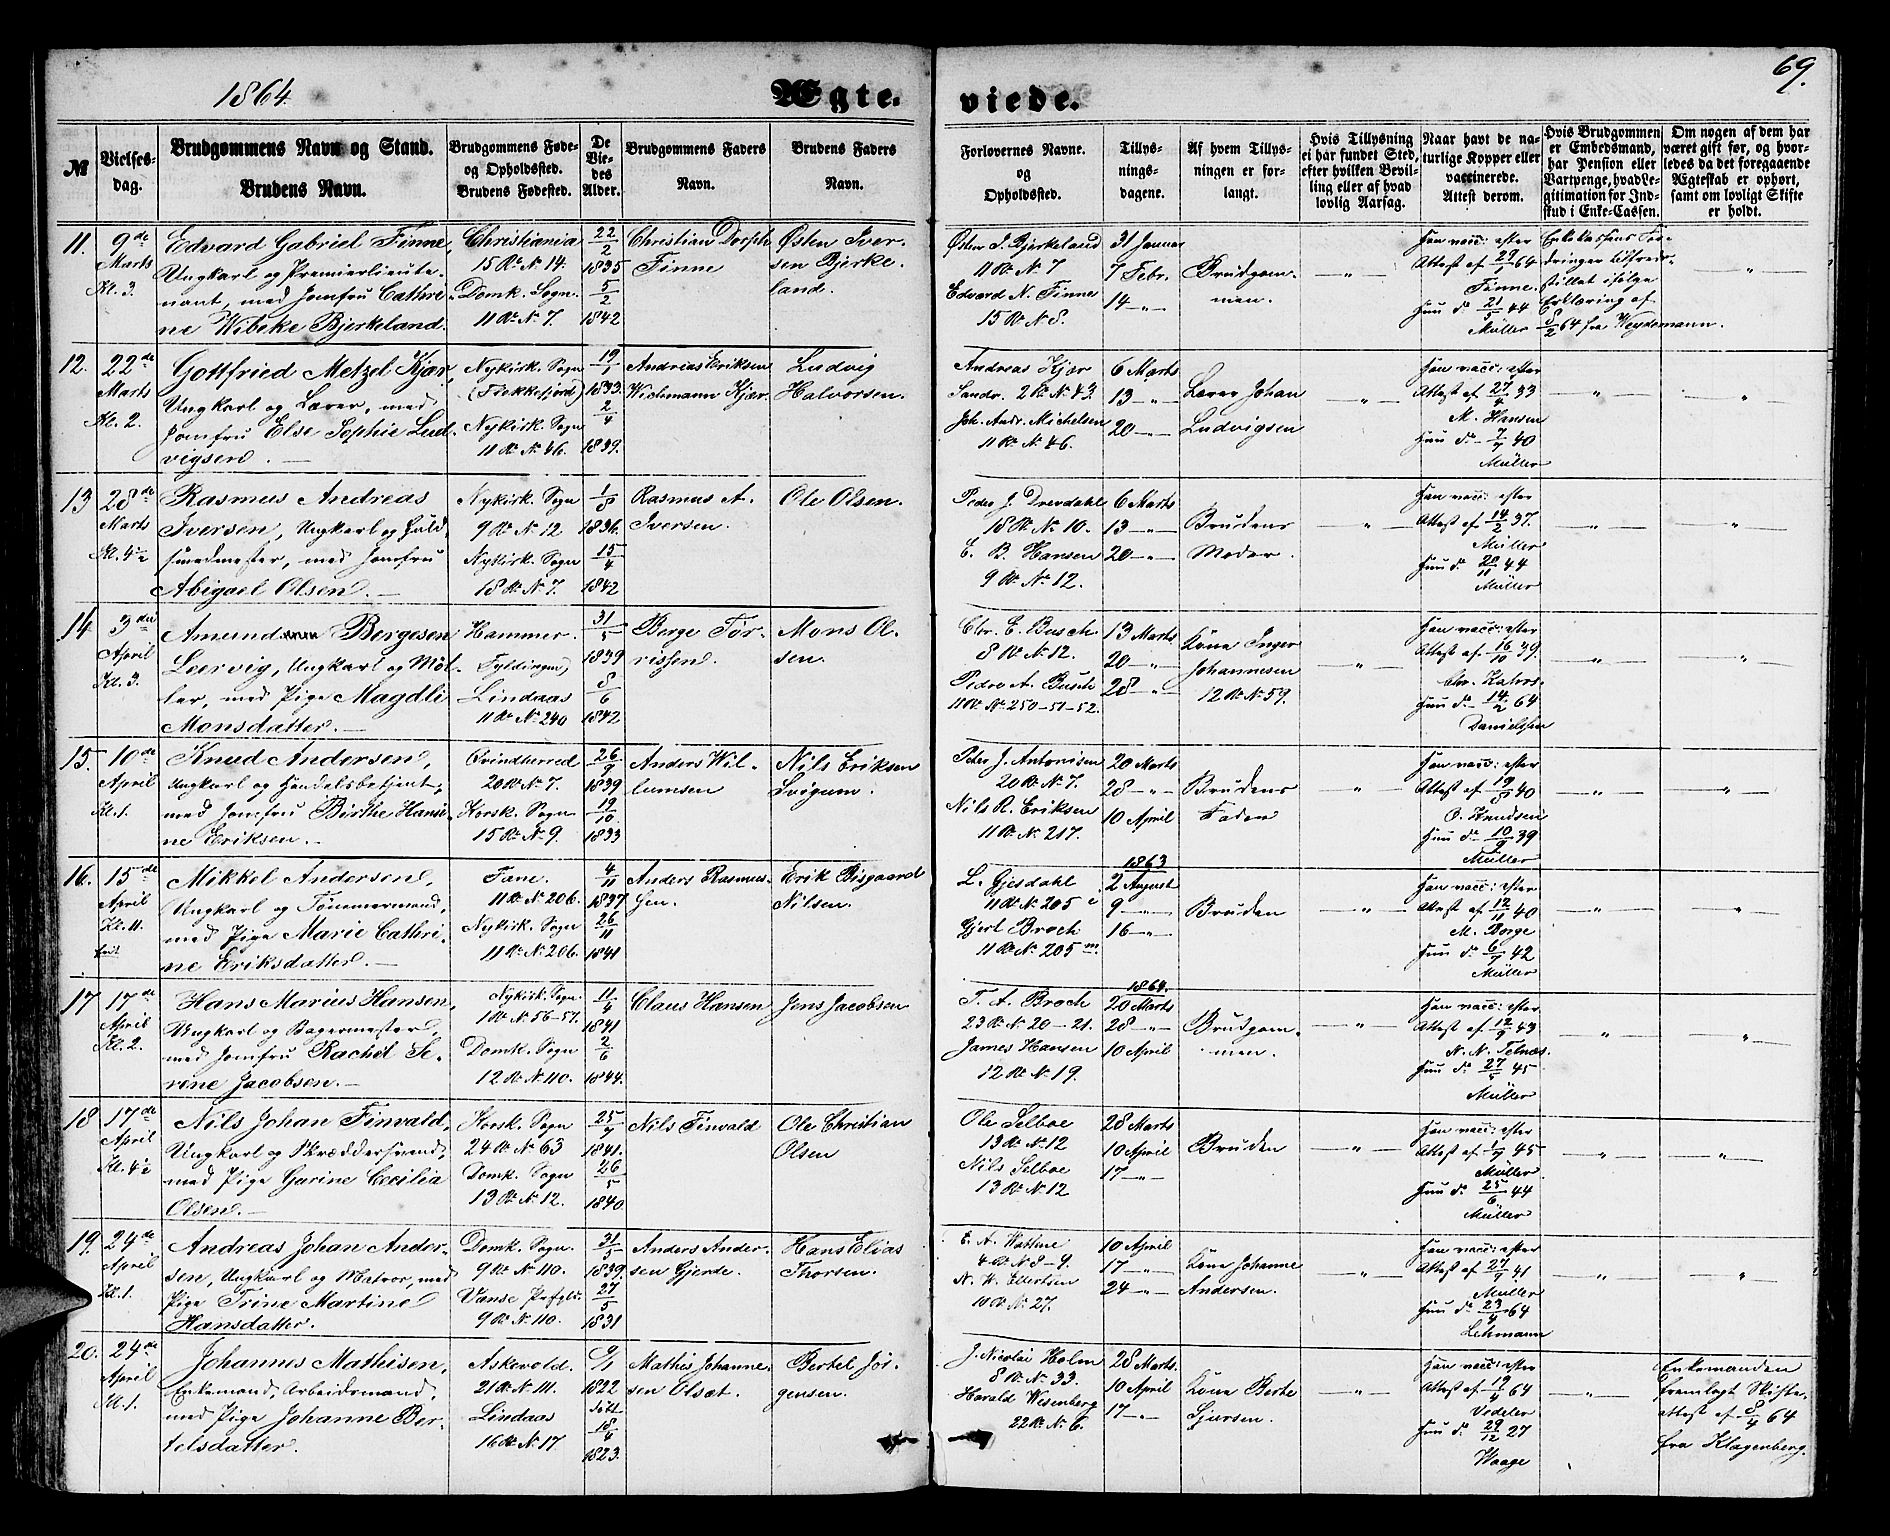 1864.
Ægte.
viede.
69.
№
Vielses-
dag.
Brudgommens Navn og Stand.
Brudens Navn.
Brudgommens Føde-
og Opholdssted.
Brudens Fødested.
De
Vie-
des
Alder.
Brudgommens Faders
Navn.
Brudens Faders
Navn.
Forlovernes Navne.
og
Opholdssted.
Tillys-
nings-
dagene.
Af hvem Tillys-
ningen er for-
langt.
Hvis Tillysning
ei har fundet Sted,
efter hvilken Bevil-
ling eller af hvad
lovlig Aarsag.
Naar havt de na-
turlige Kopper eller
vaccinerede.
Attest derom.
Hvis Brudgommen
er Embedsmand,
har Pension eller
Vartpenge, hvad Le-
gitimation for Ind-
skud i Enke-Cassen.
Om nogen af dem har
været gift før, og hvor-
ledes da det foregaaende
Ægteskab er ophørt,
samt om lovligt Skifte
er holdt.
11.
9de
Marts
Kl. 3.
Edvard Gabriel Finne,
Ungkarl og Premierlieute-
nant, med Jomfru Cathri-
ne Wibeke Bjerkeland.
Christiania
15 R. N. 14.
Domk. Sogn.
11 R. N. 7.
22/2
1835
5/2
1842
Christian Dorph
Finne
Østen Iver-
sen Bjerke-
land.
Østen I. Bjerkeland
11 R. N. 7
Edvard N. Finne
15 R. N. 8.
31 Januar
7 Febr.
14 — " —
Brudgom-
men.
— " —
Han vacc: efter
Attest af 29/1 64
Finne.
Hun do 21/5 44
Müller
Enkekassens For-
dringer tilfreds-
stillet ifølge
Erklæring af
8/2 64 fra Weydemann.
— " —
12.
22de
Marts
Kl. 2.
Gottfried Metzel Kjær,
Ungkarl og Lærer, med
Jomfru Else Sophie Lud-
vigsen. —
Nykirk. Sogn
(Flekkefjord)
Nykirk. Sogn
11 R. N. 46.
19/1
1833.
2/4
1839.
Andreas Eriksen
Wichmann Kjær.
Ludvig
Halvorsen.
Andreas Kjær
Sandv. 2 R. N. 43.
Joh. Andr. Michelsen
11 R. N. 46.
6 Marts
13 — " —
20 — " —
Lærer Johan
Ludvigsen
— " —
Han vacc: efter
Attest af 27/4 33
M. Hansen
Hun do 7/7 40
Müller
— " —
"
13
28de
Marts
Kl. 4½
Rasmus Andreas
Iversen, Ungkarl og Guld-
smedmester, med Jomfru
Abigael Olsen. —
Nykirk. Sogn
9 R. N. 12
Nykirk. Sogn
18 R. N. 7.
1/8
1836.
15/4
1842
Rasmus A.
Iversen.
Ole Olsen.
Peder J. Drevdahl
18 R. N. 10.
C. B. Hansen
9 R. N. 12.
6 Marts
13 — " —
20 — " —
Brudens
Moder.
"
Han vacc: efter
Attest af 14/2 37.
Müller
Hun do 20/11 44
Müller
— " —
— " —
14
3die
April
Kl. 3.
Amund Børgesen
Leervig, Ungkarl og Møl-
ler, med Pige Magdli
Monsdatter. —
Hammer.
Fyldingen)
Lindaas
11 R. N. 240
31/5
1839
8/6
1842
Børge Tør-
rissen.
Mons Ol-
sen.
Chr. E. Busch.
8 R. N. 12.
Peder A. Busch
11 R. N. 250-51-52.
13 Marts
20 — " —
28 — " —
Kone Inger
Johannesen
12 R. N. 59.
— " —
Han vacc: efter
Attest af 16/10 39.
Chr. Kahrs.
Hun do 14/2 64
Danielssen
"
"
15.
10de
April
Kl. 1.
Knud Andersen,
Ungkarl og Handelsbetjent,
med Jomfru Birthe Hansi-
ne Eriksen. —
Qvindherred
20 R. N. 7.
Korsk. Sogn.
15 R. N. 9.
26/9
1839
19/10.
1833
Anders Wil-
lumsen
Nils Eriksen
Svigum.
Peder J. Antonisen
20 R. N. 7.
Nils R. Eriksen
11 R. N. 217.
20 Marts
28 — " —
10 April
Brudens
Fader
— " —
Han vacc: efter
Attest af 19/8 40
O. Knudsen
Hun do 10/9 39
Müller
— " —
— " —
16.
15de
April
Kl. 11.
Mikkel Andersen,
Ungkarl og Tømmermand,
med Pige Marie Cathri-
ne Eriksdatter. —
Fane.
11 R. N. 206.
Nykirk. Sogn
11 R. N. 206.
4/11
1837
26/11
1841
Anders Rasmus-
sen.
Erik Bisgaard
Nilsen.
L. Gjesdahl
11 R. N. 205 i
Gjert Broch
11 R. N. 205 m.
1863
2 August
9 — " —
16 — " —
Bruden
— " —
Han vacc: efter
Attest af 12/11 40
M. Borge
Hun do 6/7 42
Müller
— " —
"
17
17de
April
Kl. 2.
Hans Marius Hansen,
Ungkarl og Bagermester,
med Jomfru Rachel Se-
rine Jacobsen. —
Nykirk. Sogn.
1 R. N. 56-57.
Domk. Sogn
12 R. N. 110.
11/4
1841
2/6
1844.
Claus Hansen
Jens Jacobsen
T. A. Broch
23 R. N. 20-21.
James Hansen
12 R. N. 19.
1864.
20 Marts
28 — " —
10 April
Brudgom-
men.
— " —
Han vacc: efter
Attest af 12/9 43
N. N. Telnæs.
Hun do 27/5 45
Müller
"
"
18
17de
April
Kl. 4½
Nils Johan Finvald,
Ungkarl og Skræddersvend,
med Pige Garine Cecilia
Olsen. —
Korsk. Sogn
24 R. N. 63
Domk. Sogn
13 R. N. 12.
25/7
1841.
26/5
1840
Nils Finvald
Ole Christian
Olsen
Ole Selboe
13 R. N. 12
Nils Selboe
13 R. N. 12
28 Marts
10 April
17 — " —
Bruden
— " —
Han vacc: efter
Attest af 1/7 45
Müller
Hun do 25/6 44
Müller
— " —
"
19.
24de
April
Kl. 1.
Andreas Johan Ander-
sen, Ungkarl og Matros, med
Pige Trine Martine
Hansdatter.
Domk. Sogn.
9 R. N. 110.
Vanse Præstgld.
9 R. N. 110.
31/5
1839.
27/5
1831
Anders Ander-
sen Gjerde.
Hans Elias
Thorsen.
E. A. Wattne
4 R. N. 8-9.
N. W. Ellertsen
10 R. N. 27.
10 April
17 — " —
24 — " —
Kone Johanne
Andersen.
"
Han vacc: efter
Attest af 27/9 41
Müller
Hun do 23/4 64
Lehmann
"
"
20.
24de
April
Kl. 1.
Johannes Mathisen,
Enkemand, Arbeidsmand,
med Pige Johanne Ber-
telsdatter.
Askevold.
21 R. N. 111.
Lindaas
16 R. N. 17
6/1
1822
døbt
18/4
1823.
Mathis Johanne-
sen Olset.
Bertel Jør-
gensen.
J. Nicolai Holm
8 R. N. 33.
Harald Wesenberg
22 R. N. 6.
28 Marts.
10 April
17 — " —
Kone Berte
Sjursen.
— " —
Han vacc: efter
Attest af 19/4 64
Vedeler
Hun do 29/12 27
Waage
— " —
Enkemanden
fremlagt Skifte-
attest af 8/4 64
fra Klagenberg.